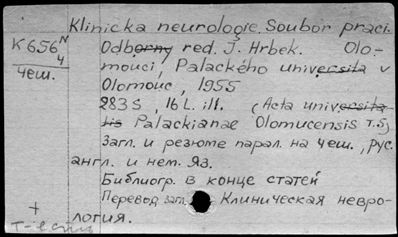 Klinicka neurologie. Soubor praci.
K656 N/4
чеш.
Odborny red. J. Hrbek. Olo-
mouci, Palackého universita v
Olomouc, 1955
283 S, 16 L. ill. (Acta universita-
tis Palackianae Olomucensis T.5)
Загл. и резюме парал. на чеш., рус.
англ. и нем. яз.
Библиогр. в конце статей
Перевод загл. Клиническая невро-
логия.
+